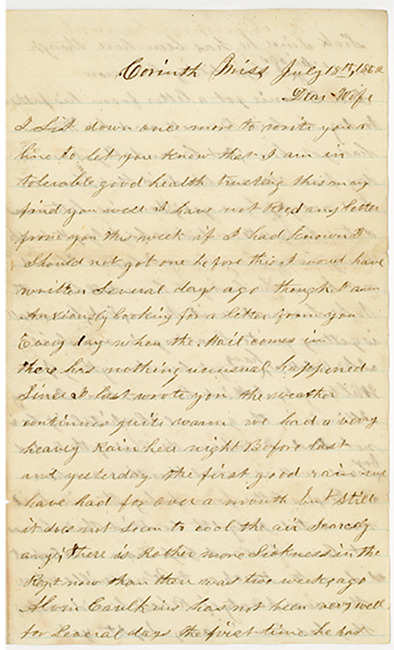 Corinth Miss July 18th, 1862
Dear Wife
I Sit down once more to write you a
line to let you know that I am in
tolerable good health trusting this may
find you well I have not Recd any letter
from you this week if I had known I
Should not got one before this I would have
written Several days ago though I am
Anxiously looking for a letter from you
Every day when the Mail comes in
there has nothing unusual happened
Since I last wrote you the weather
continues quite warm we had a very
heavy Rain here night Before last
and yesterday the first good rain we
have had for over a month but Still
it does not Seem to cool the air Scarcely
any, There is Rather more Sickness in the
Regt now than there was two weeks ago
Alvin Caulkins has not been very well
for Several days the first time he has